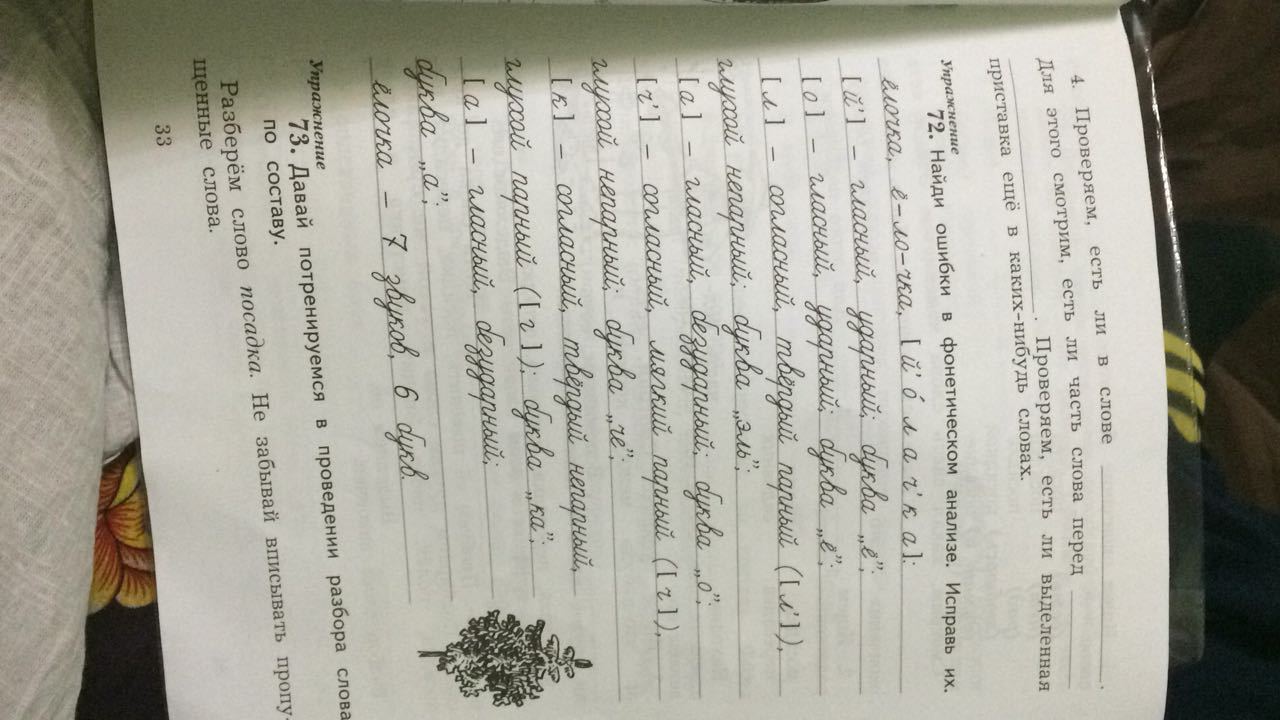 4. Проверяем, есть ли в слове ________.
Для этого смотрим, есть ли часть слова перед ________
________. Проверяем, есть ли выделенная
приставка ещё в каких-нибудь словах.
Упражнение
72. Найди ошибки в фонетическом анализе. Исправь их.
ёлочка, ё-ло-чка, [й’ о́ л а ч’ к а]:
[й’] – гласный, ударный; буква „ё”;
[о] – гласный, ударный; буква „ё”;
[л] – согласный, твёрдый парный ([л’]),
глухой непарный; буква „эль”;
[а] – гласный, безударный; буква „о”;
[ч’] – согласный, мягкий парный ([ч]),
глухой непарный; буква „че”;
[к] – согласный, твёрдый непарный,
глухой парный ([г]); буква „ка”;
[а] – гласный, безударный;
буква „а”;
ёлочка – 7 звуков, 6 букв.
Упражнение
73. Давай потренируемся в проведении разбора слова
по составу.
Разберём слово посадка. Не забывай вписывать пропу-
щенные слова.
33